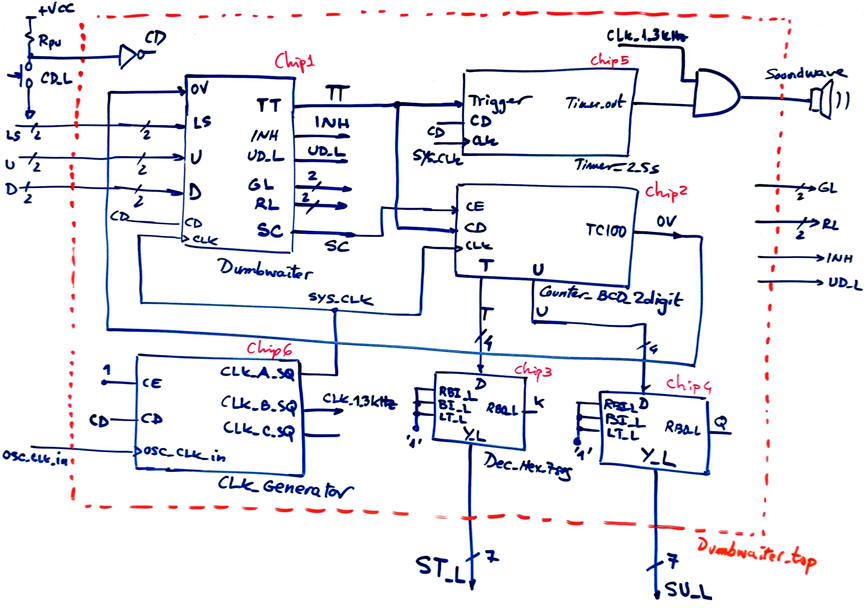 +Vcc
Rpu
CD
CD_L
LS 2
U 2
D 2
2
2
2
Chip1
OV
LS
U
D
CD CD
CLK
TT
INH
UD_L
GL
RL
SC
Dumbwaiter
TT
INH
UD_L
2
2
SC
CLK_1_3kHz
Chip5
Trigger
CD
CLK
Timer_out
CD
SYS_CLK
Timer_2_5s
Soundwave
Chip2
CE
CD
CLK
TC100
T U
OV
Counter_BCD_2digit
2 GL
2 RL
INH
UD_L
SYS_CLK
T
4
U
4
Chip6
1
CE
CD CD
OSC_CLK_in
OSC_CLK_in
CLK_A_SQ
CLK_B_SQ
CLK_C_SQ
CLK_1_3kHz
CLK_Generator
Chip3
D
RBI_L
BI_L
LT_L
RBO_L
K
Y_L
'1'
Dec_Hex_7seg
Chip4
D
RBI_L
BI_L
LT_L
RBO_L
Q
Y_L
'1'
Dumbwaiter_top
ST_L
7
SU_L
7